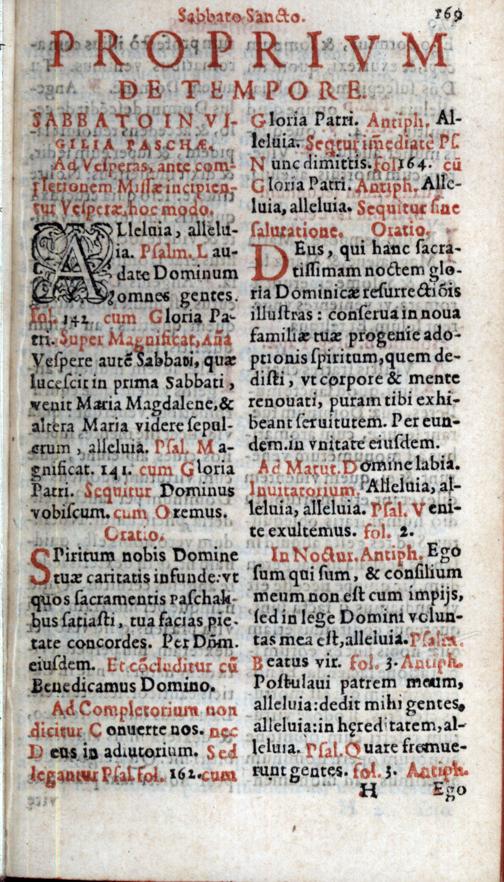 Sabbato Sancto. 169
PROPRIVM
DE TEMPORE
SABBATO IN VI-
GILIA PASCHÆ.
Ad Vesperas, ante com-
pletionem Missæ incipien-
tur Vesperæ, hoc modo.
ALleluia, allelu-
ia. Psalm. Lau-
date Dominum
omnes gentes.
fol. 142. cum Gloria Pa-
tri. Super Magnificat, Aña
Vespere autē Sabbati, quæ
lucescit in prima Sabbati,
venit Maria Magdalene, &
altera Maria videre sepul-
crum, alleluia. Psal. Ma-
gnificat. 141. cum Gloria
Patri. Sequitur Dominus
vobiscum. cum Oremus.
Oratio.
SPiritum nobis Domine
tuæ caritatis infunde: vt
quos sacramentis Paschali-
bus satiasti, tua facias pie-
tate concordes. Per Dñm.
eiusdem. Et cōcluditur cū
Benedicamus Domino.
Ad Completorium non
dicitur Conuerte nos. nec
Deus in adiutorium. Sed
legantur Psal. fol. 162. cum
Gloria Patri. Antiph. Al-
leluia. Seqtur imediatè Ps.
Nunc dimittis. fol 164. cū
Gloria Patri. Antiph. Alle-
luia, alleluia. Sequitur sine
salutatione. Oratio.
DEus, qui hanc sacra-
tissimam noctem glo-
ria Dominicæ resurrectiōis
illustras: conserua in noua
familiæ tuæ progenie ado-
ptionis spiritum, quem de-
disti, vt corpore & mente
renouati, puram tibi exhi-
beant seruitutem. Per eun-
dem. in vnitate eiusdem.
Ad Matut. Domine labia.
Inuitatorium. Alleluia, al-
leluia, alleluia. Psal. Veni-
te exultemus. fol. 2.
In Noctur. Antiph. Ego
sum qui sum, & consilium
meum non est cum impijs,
sed in lege Domini volun-
tas mea est, alleluia. Psalm.
Beatus vir. fol. 3. Antiph.
Postulaui patrem meum,
alleluia: dedit mihi gentes,
alleluia: in hęreditatem, al-
leluia. Psal. Quare fremue-
runt gentes. fol. 3. Antiph.
H Ego